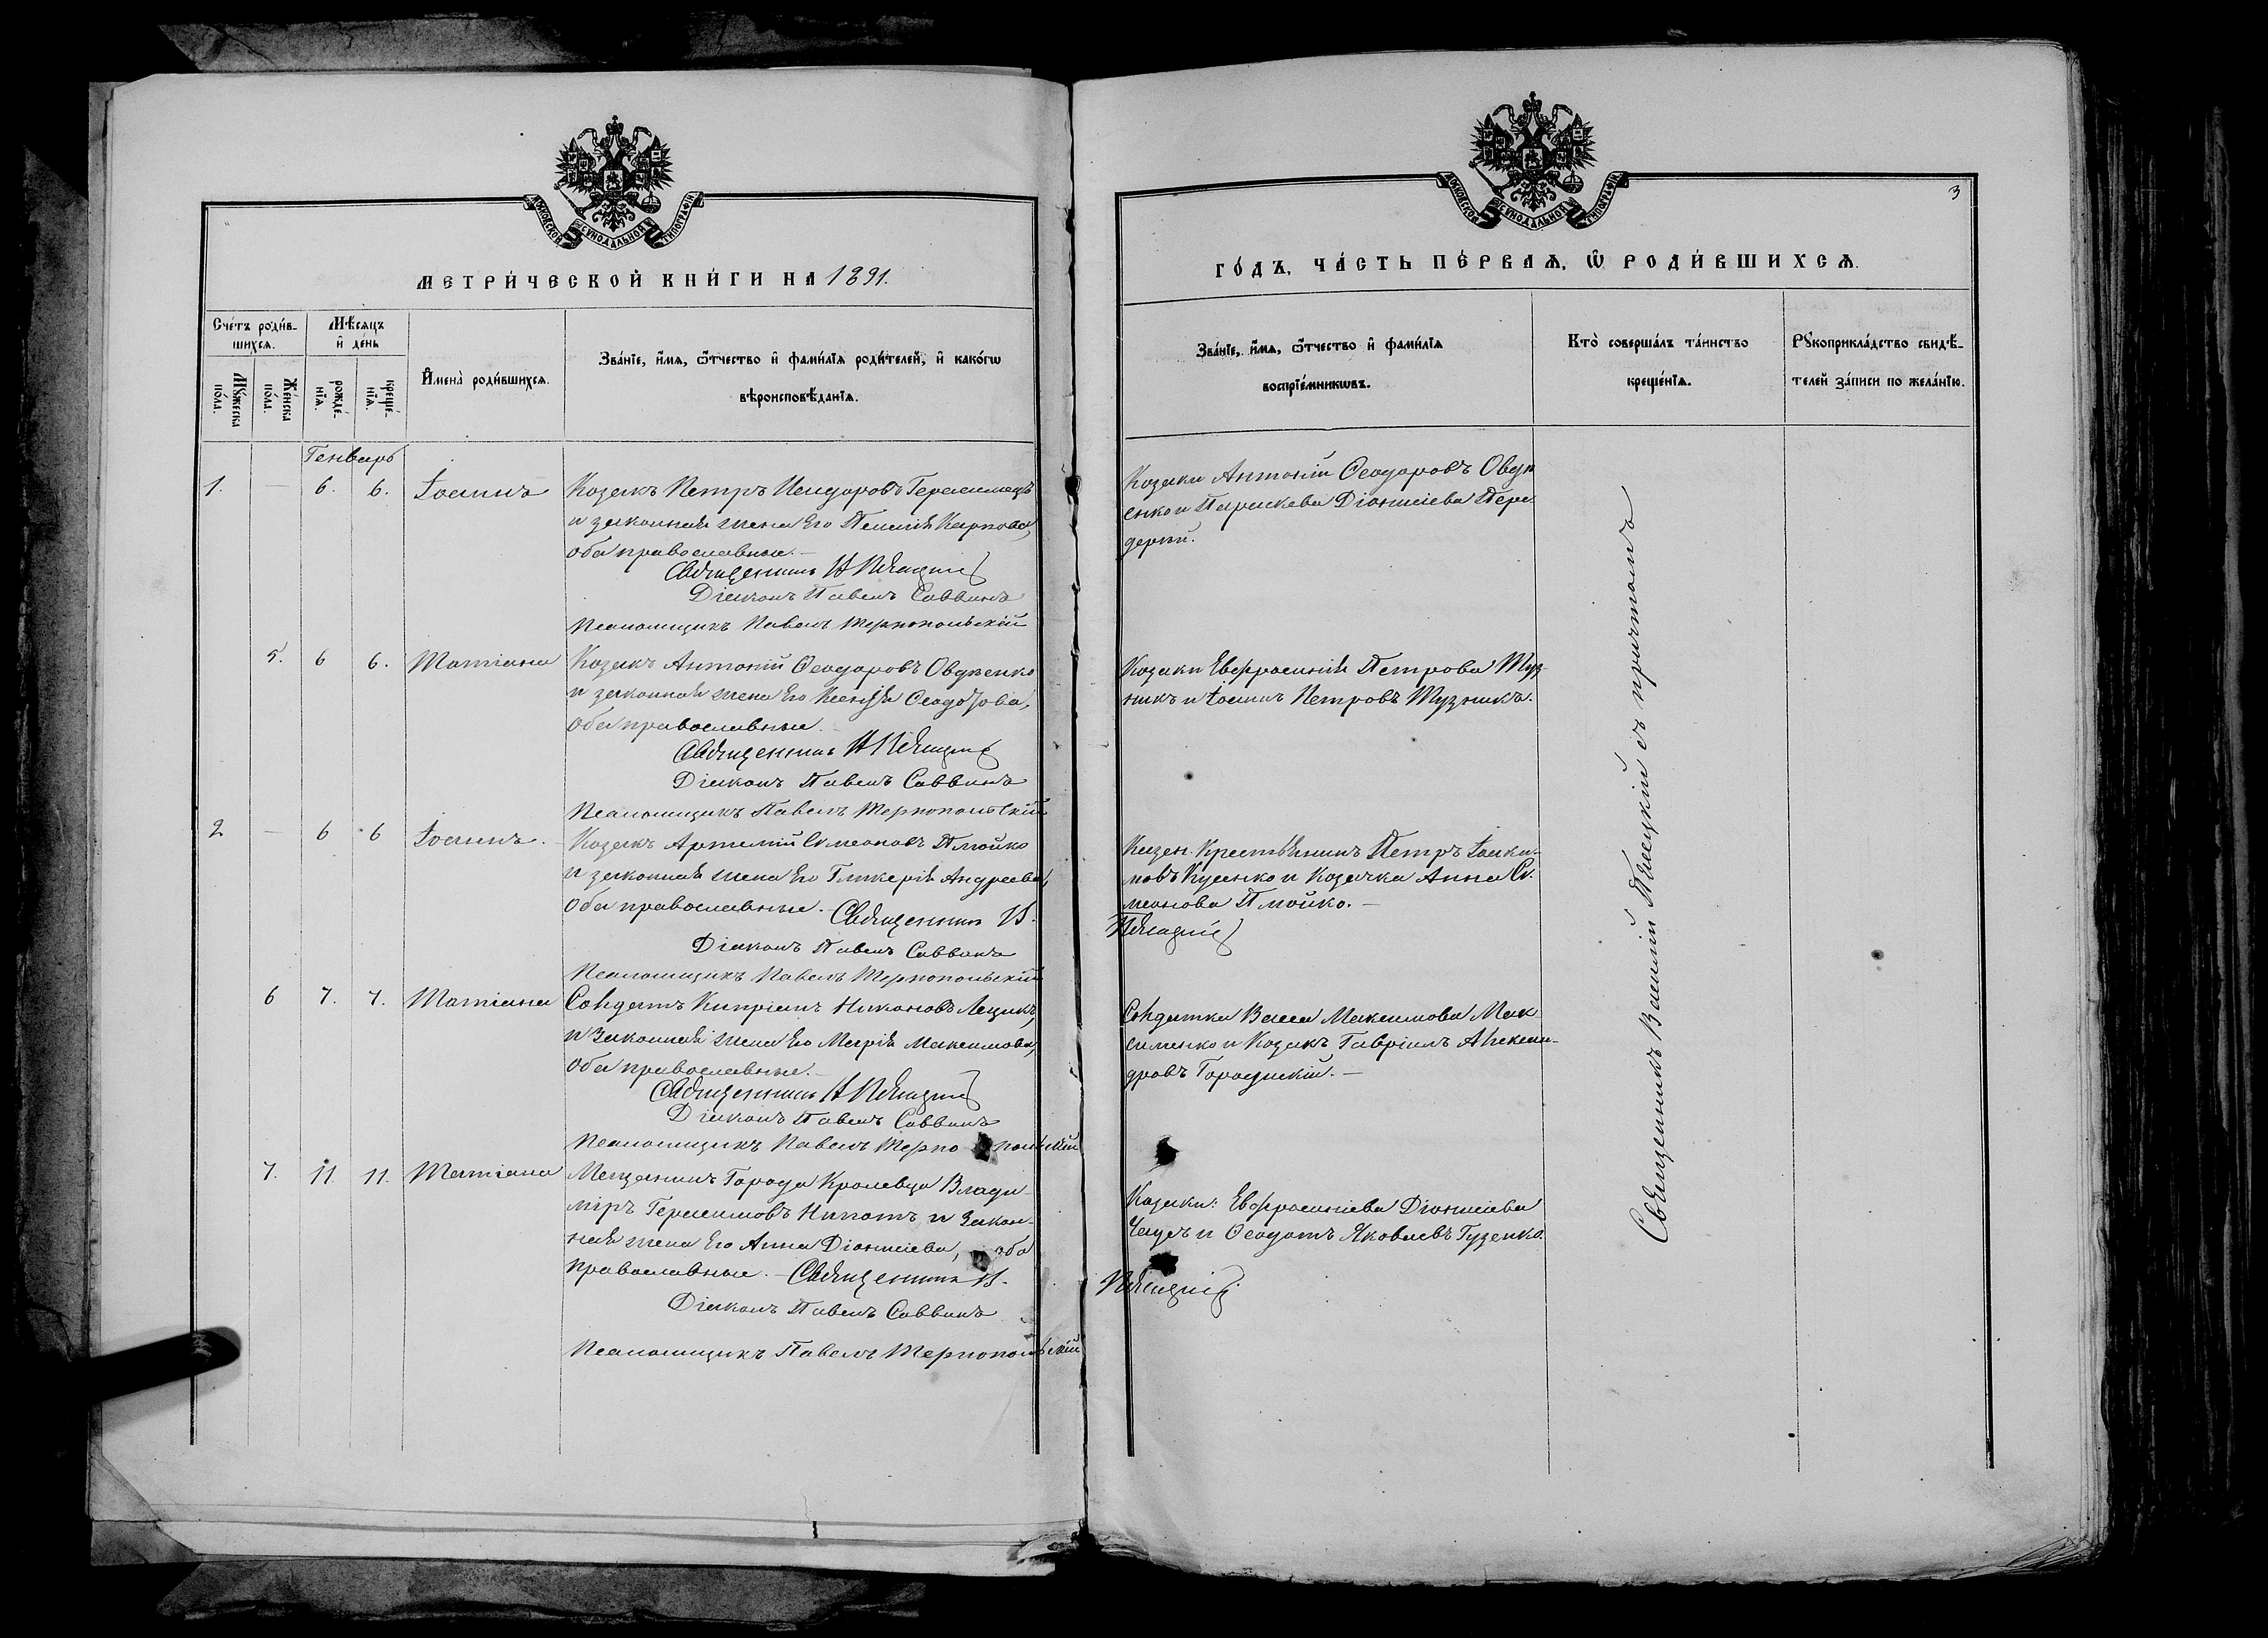 МОСКОВСКОЙ СѴНОДАЛЬНОЙ ТИПОГРАФІИ
МЕТРИ́ЧЕСКОЙ КНИ́ГИ НА 1891.
Сче́тъ роди́в-
шихсѧ.
Мѣ́сѧцъ
и҆ де́нь
Мꙋ́жеска
по́ла.
Же́нска
по́ла.
рожде́-
нїѧ.
креще́-
нїѧ.
И҆мена̀ роди́вшихсѧ.
Зва́нїе, и҆́мѧ, ѻ҆́тчество и҆ фами́лїѧ роди́телей, и҆ како́гѡ
вѣроисповѣ́данїѧ.
Генварь
1. — 6. 6. Іоаннъ
Козакъ Петръ Исидоровъ Герасимецъ
и законная жена его Пелагія Карпова,
оба православные. —
Священникъ В Пясецкій
Діаконъ Павелъ Саввинъ
Псаломщикъ Павелъ Терпопольскій
5. 6 6. Татіана
Козакъ Антоній Ѳеодоровъ Овдѣенко
и законная жена его Ксенія Ѳеодорова,
оба православные.
Священникъ В Пясецкій
Діаконъ Павелъ Саввинъ
Псаломщикъ Павелъ Терпопольскій
2 — 6 6 Іоаннъ.
Козакъ Артемій Симеоновъ Тмойко
и законная жена его Гликерія Андреева,
оба православные. — Священникъ В.
Діаконъ Павелъ Саввинъ
Псаломщикъ Павелъ Терпопольскій
6 7. 7. Татіана
Солдатъ Кипріанъ Никоновъ Лещикъ,
и законная жена его Марія Максимова,
оба православные. —
Священникъ В Пясецкій
Діаконъ Павелъ Саввинъ
Псаломщикъ Павелъ Терпопольскій
7. 11 11. Татіана
Мещанинъ Города Кролевца Влади-
міръ Герасимовъ Нипотъ и закон-
ная жена его Анна Діонисіева, оба
православные. — Священникъ В.
Діаконъ Павелъ Саввинъ
Псаломщикъ Павелъ Терпопольскій
3
МОСКОВСКОЙ СѴНОДАЛЬНОЙ ТИПОГРАФІИ
ГО́ДЪ, ЧА́СТЬ ПЕ́РВАѦ, Ѡ҆ РОДИ́ВШИХСѦ.
Зва́нїе, и҆́мѧ, ѻ҆́тчество и҆ фами́лїѧ
воспрїе́мникѡвъ.
Кто̀ соверша́лъ та́инство
креще́нїѧ.
Рꙋкоприкла́дство свидѣ́-
телей за́писи по жела́нїю.
Козаки Антоній Ѳеодоровъ Овдѣ
енко и Параскева Діонисіева Пере
дерій.
Козаки Евфросинія Петрова Туз
никъ и Іоаннъ Петровъ Тузникъ.
Казен. Крестьянинъ Петръ Іоаки-
мовъ Куценко и Козачка Анна Си
меонова Тмойко. —
Пясецкій
Солдатка Васса Максимова Мак
сименко и Козакъ Гавріилъ Алексан-
дровъ Городискій. —
Козаки: Евфросиніева Діонисіева
и Ѳеодотъ Яковлевъ Гузенко.
Пясецкій.
Священникъ Василій Пясецкій съ причтомъ